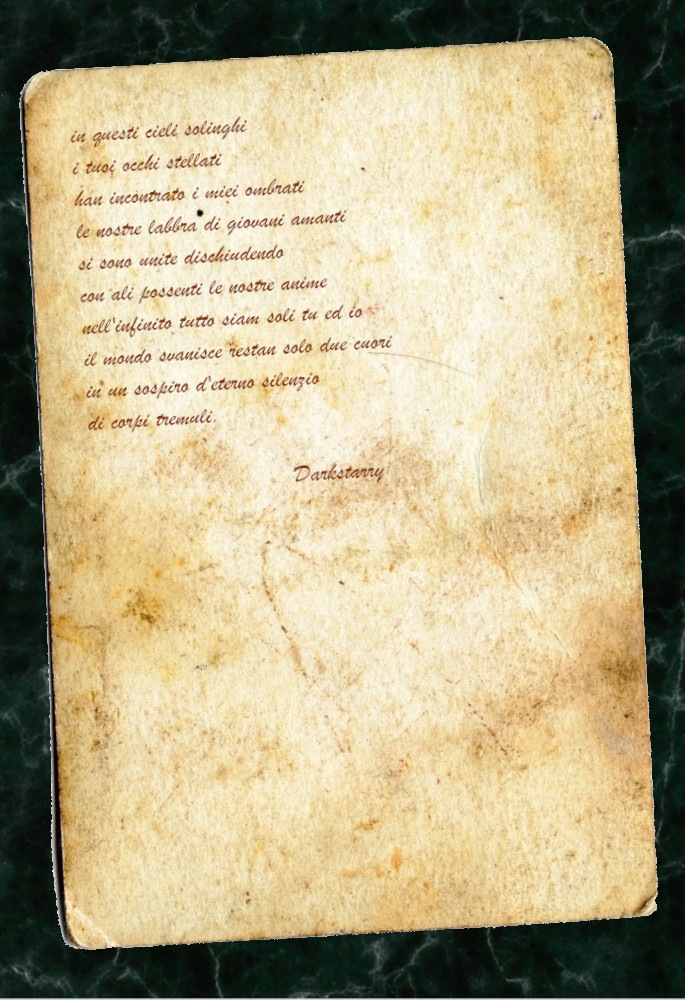 in questi cieli solinghi
i tuoi occhi stellati
han incontrato i miei ombrati
le nostre labbra di giovani amanti
si sono unite dischiudendo
con ali possenti le nostre anime
nell'infinito tutto siam soli tu ed io
il mondo svanisce restan solo due cuori
in un sospiro d'eterno silenzio
di corpi tremuli.
Darkstarry